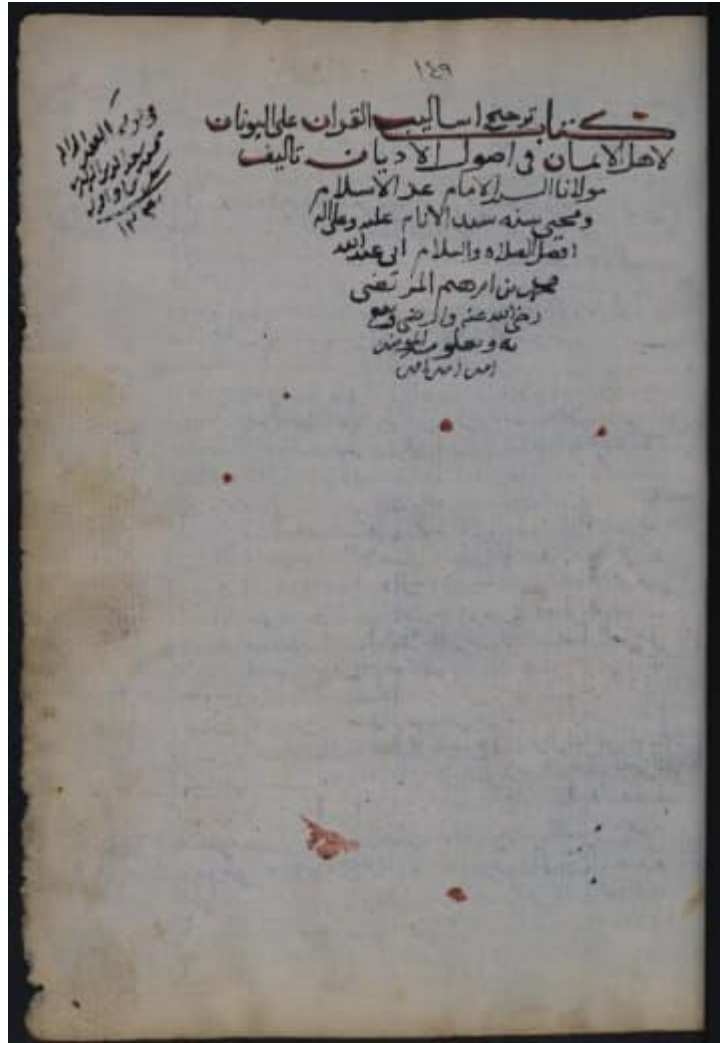 ١٤٩
كتاب ترجيح اساليب القران على اليونان
لاهل الايمان في اصول الاديان تاليف
مولانا السيد الامام عز الاسلام
ومحيي سنه سيد الانام عليه وعلى اله
افضل الصلاه والسلام ابي عبد الله
محمد بن ابرهيم المرتضى
رضي الله عنه وارضى ونفع
به وبعلومه المومنين
امين امين امين